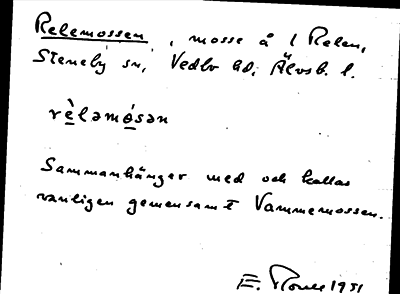 Relemossen, mosse å l Relen,
Steneby sn, Vedbo hd, Älvsb. l.
rèləmósən
Sammanhänger med och kallas
vanligen gemensamt Vammemossen.
E. 1931